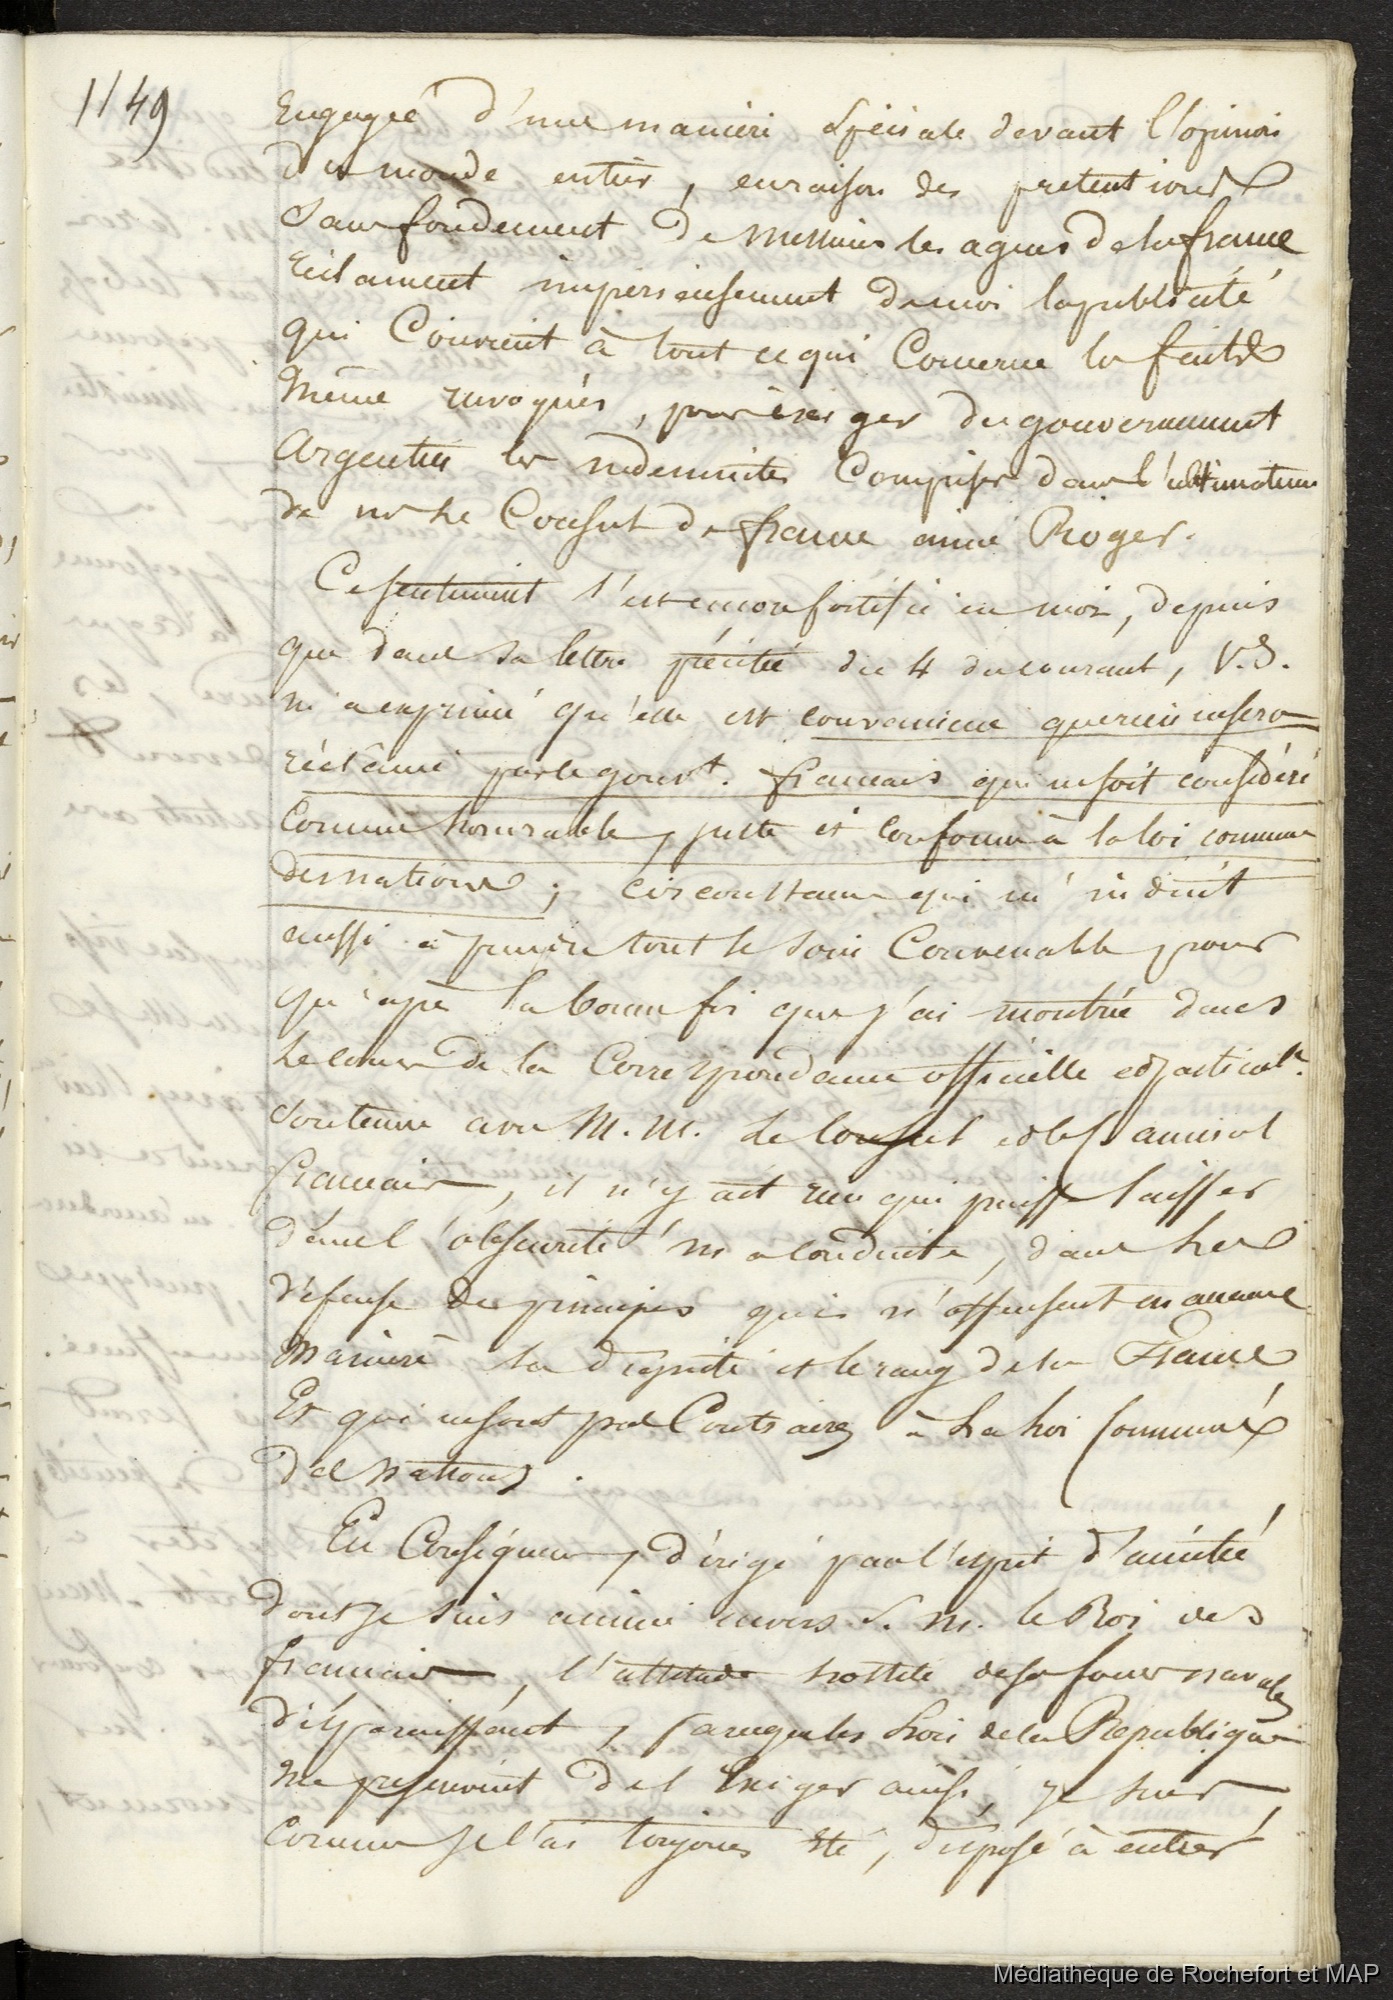 1149
Engagée d'une manière speciale devant l'opinion
du monde entier, en raison des pretentions
sans fondement de Messieurs les agens de la france
réclament imperieusement de moi la publicité
qui Convient à tout ce qui Concerne les
même invoqués, pour exiger du gouvernement
Argentin les indemnités Comprises dans l'ultimatum
de Mr le Consul de france aimé Roger.
Ce sentiment s'est encore fortifié en moi, depuis
que dans sa lettre précitée du 4 du courant, V.S.
m'a exprimé qu'elle est convaincue que rien ne sera
réclamé par le gouvt. francais qui ne soit considéré
comme honorable, juste et conforme à la loi commune
des nations; circonstance qui m'induit
aussi à prendre tout le soin Convenable, pour
qu'après la bonne foi que j'ai montrée dans
le cours de la Correspondance officielle et particule.
soutenue avec M.M. le Consul et les amiral
francais, il n'y ait rien qui puisse laisser
dans l'obscurité ma conduite, dans la
défense des principes qui n'offensent en aucune
manière la dignité et le rang de la France
Et qui ne sont pas Contraires à la loi Commune
des nations.
En Conséquence, dirigé par l'esprit d'amitié
dont je suis animé envers S. M. le Roi des
francais, l'attitude hostile de ses forces navales
disparaissant, parceque les lois de la République
me prescrivent de l'exiger ainsi, je suis
comme je l'ai toujours été, disposé à entrer
Médiathèque de Rochefort et MAP